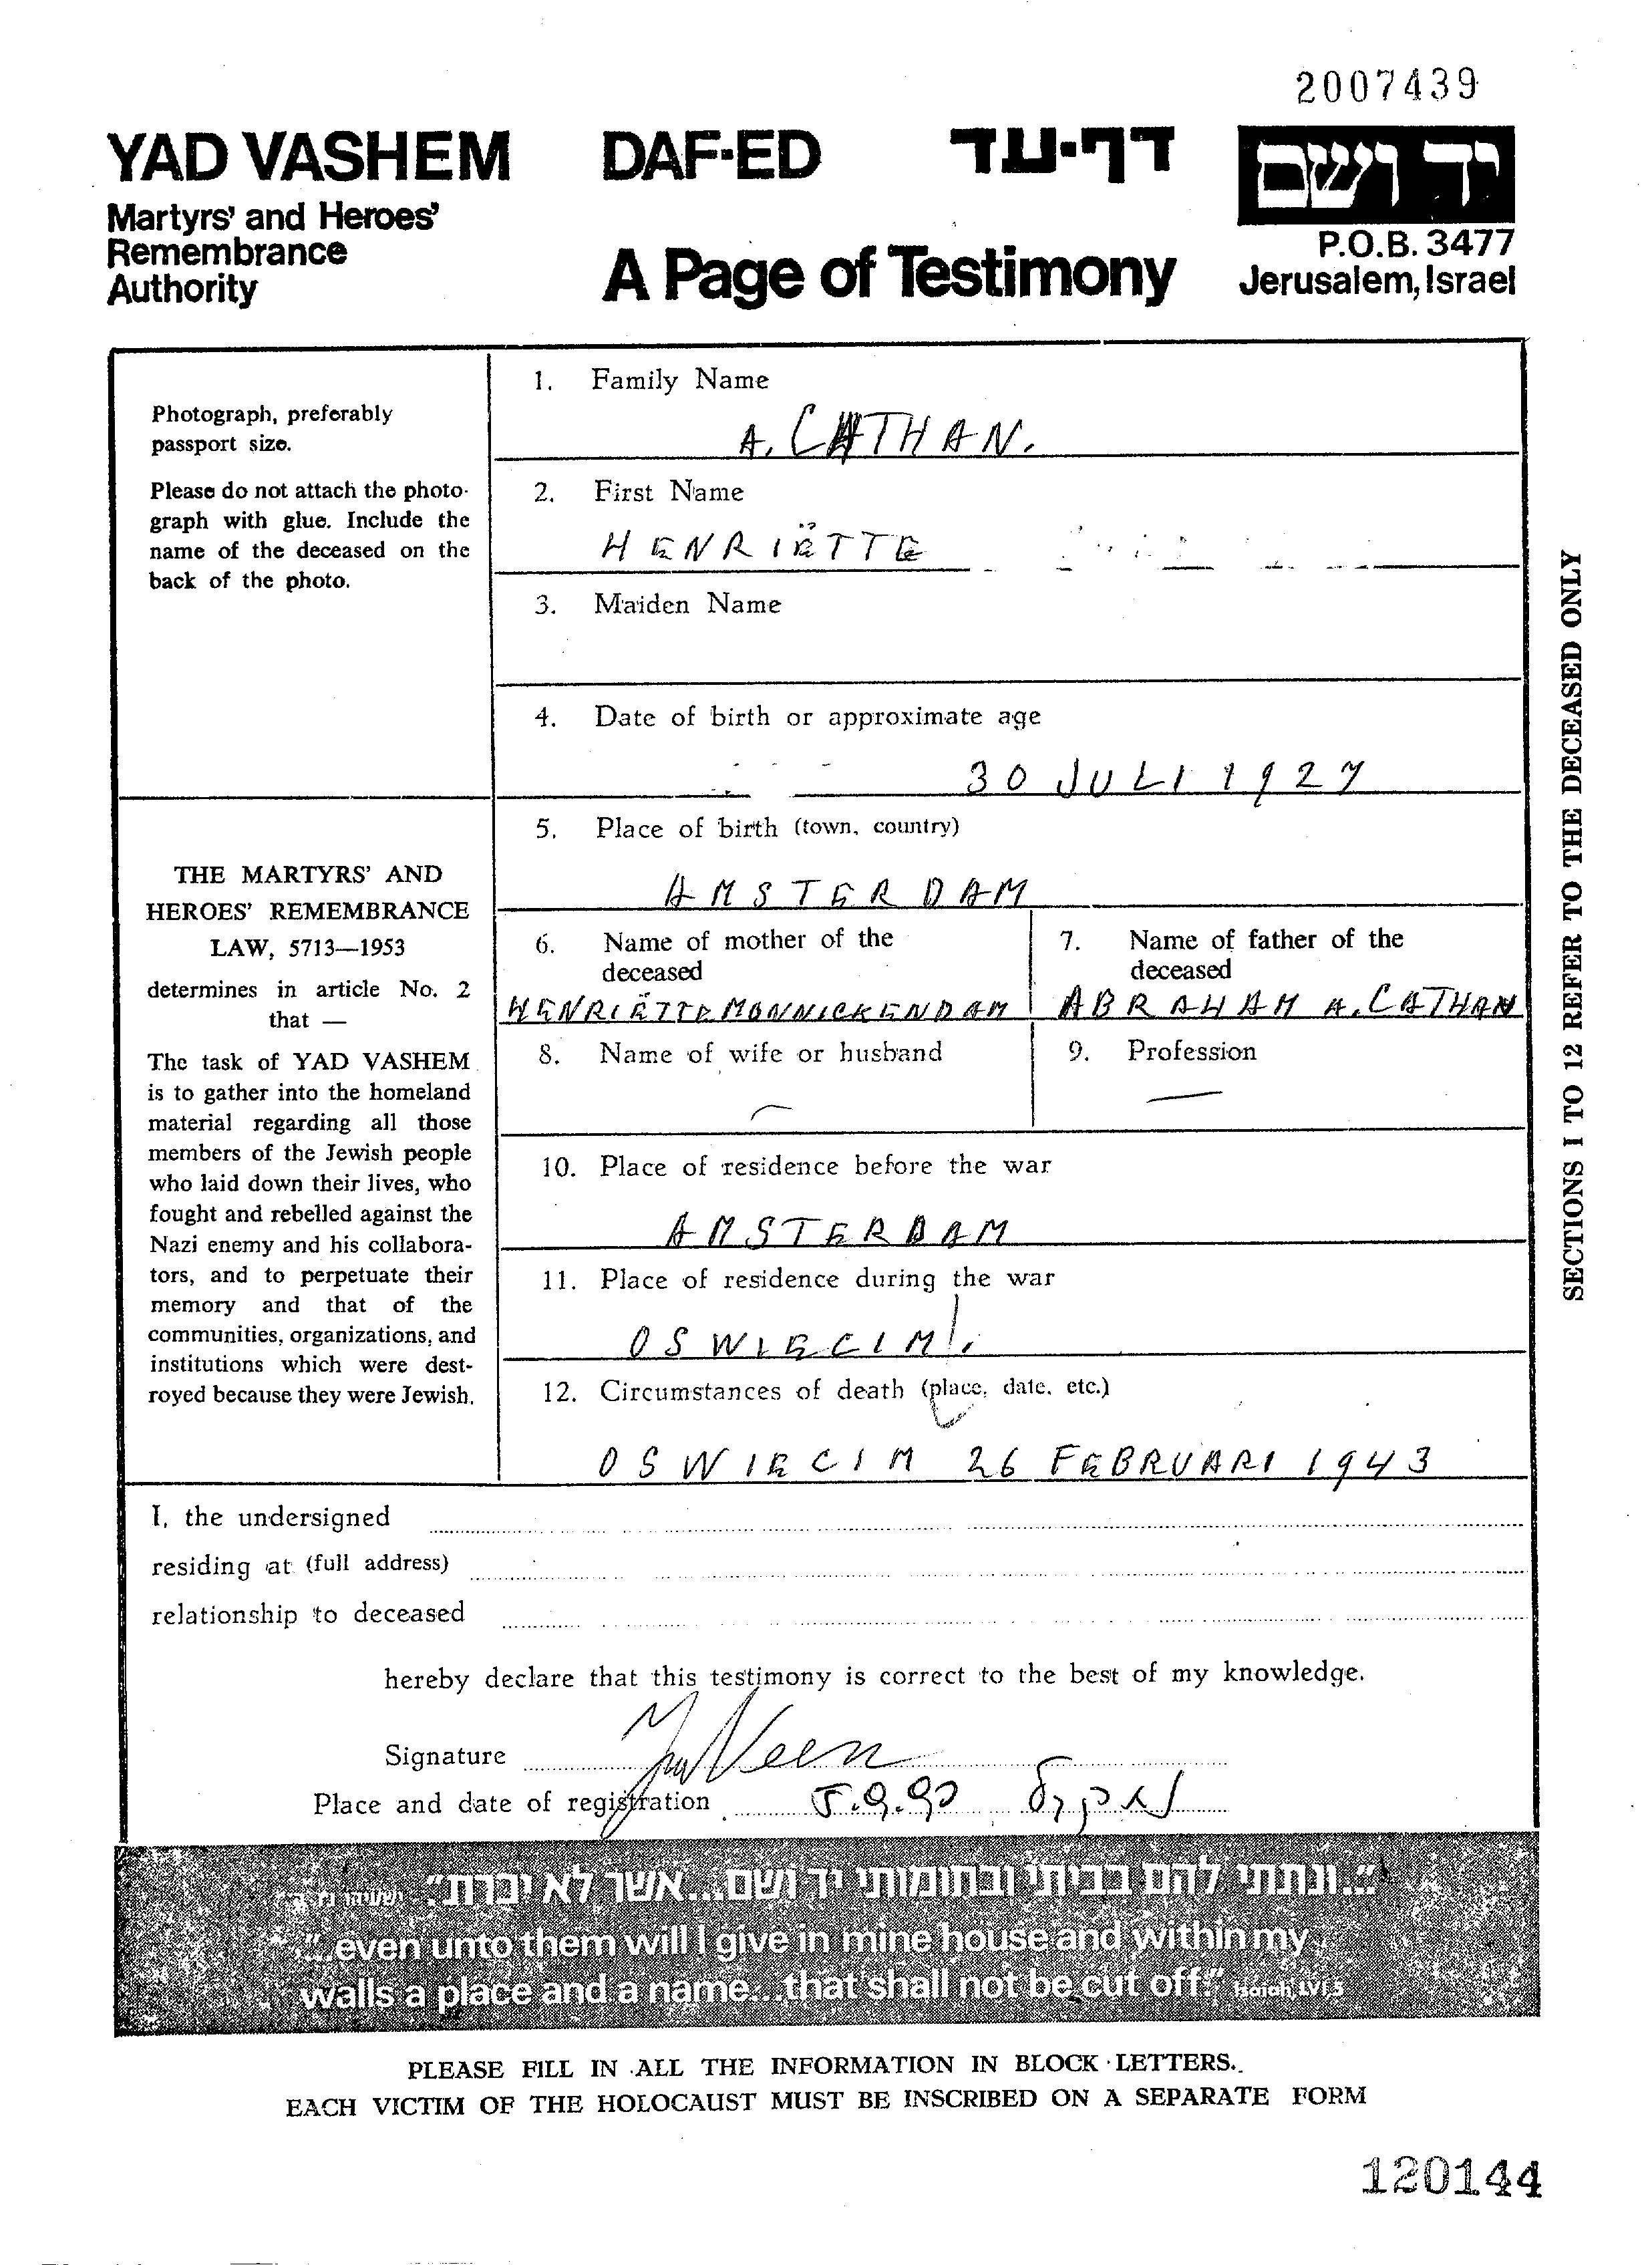 2007439
YAD VASHEM DAF-ED דף-עד יד ושם
Martyrs' and Heroes'
Remembrance
Authority
A Page of Testimony
P.O.B. 3477
Jerusalem, Israel
Photograph, preferably
passport size.
Please do not attach the photo-
graph with glue. Include the
name of the deceased on the
back of the photo.
THE MARTYRS' AND
HEROES' REMEMBRANCE
LAW, 5713—1953
determines in article No. 2
that —
The task of YAD VASHEM
is to gather into the homeland
material regarding all those
members of the Jewish people
who laid down their lives, who
fought and rebelled against the
Nazi enemy and his collabora-
tors, and to perpetuate their
memory and that of the
communities, organizations, and
institutions which were dest-
royed because they were Jewish.
1. Family Name
A. CATHAN.
2. First Name
HENRIËTTE
3. Maiden Name
4. Date of birth or approximate age
30 JULI 1927
5. Place of birth (town, country)
AMSTERDAM
6. Name of mother of the
deceased
HENRIËTTE MONNICKENDAM
7. Name of father of the
deceased
ABRAHAM A. CATHAN
8. Name of wife or husband
—
9. Profession
—
10. Place of residence before the war
AMSTERDAM
11. Place of residence during the war
OSWIECIM!.
12. Circumstances of death (place, date, etc.)
OSWIECIM 26 FEBRUARI 1943
SECTIONS 1 TO 12 REFER TO THE DECEASED ONLY
I, the undersigned
residing at (full address)
relationship to deceased
hereby declare that this testimony is correct to the best of my knowledge.
Signature
Place and date of registration
"...ונתתי להם בביתי ובחומותי יד ושם...אשר לא יכרת". ישעיהו נו, ה
"...even unto them will I give in mine house and within my
walls a place and a name...that shall not be cut off." Isaiah, LVI,5
PLEASE FILL IN ALL THE INFORMATION IN BLOCK LETTERS.
EACH VICTIM OF THE HOLOCAUST MUST BE INSCRIBED ON A SEPARATE FORM
120144